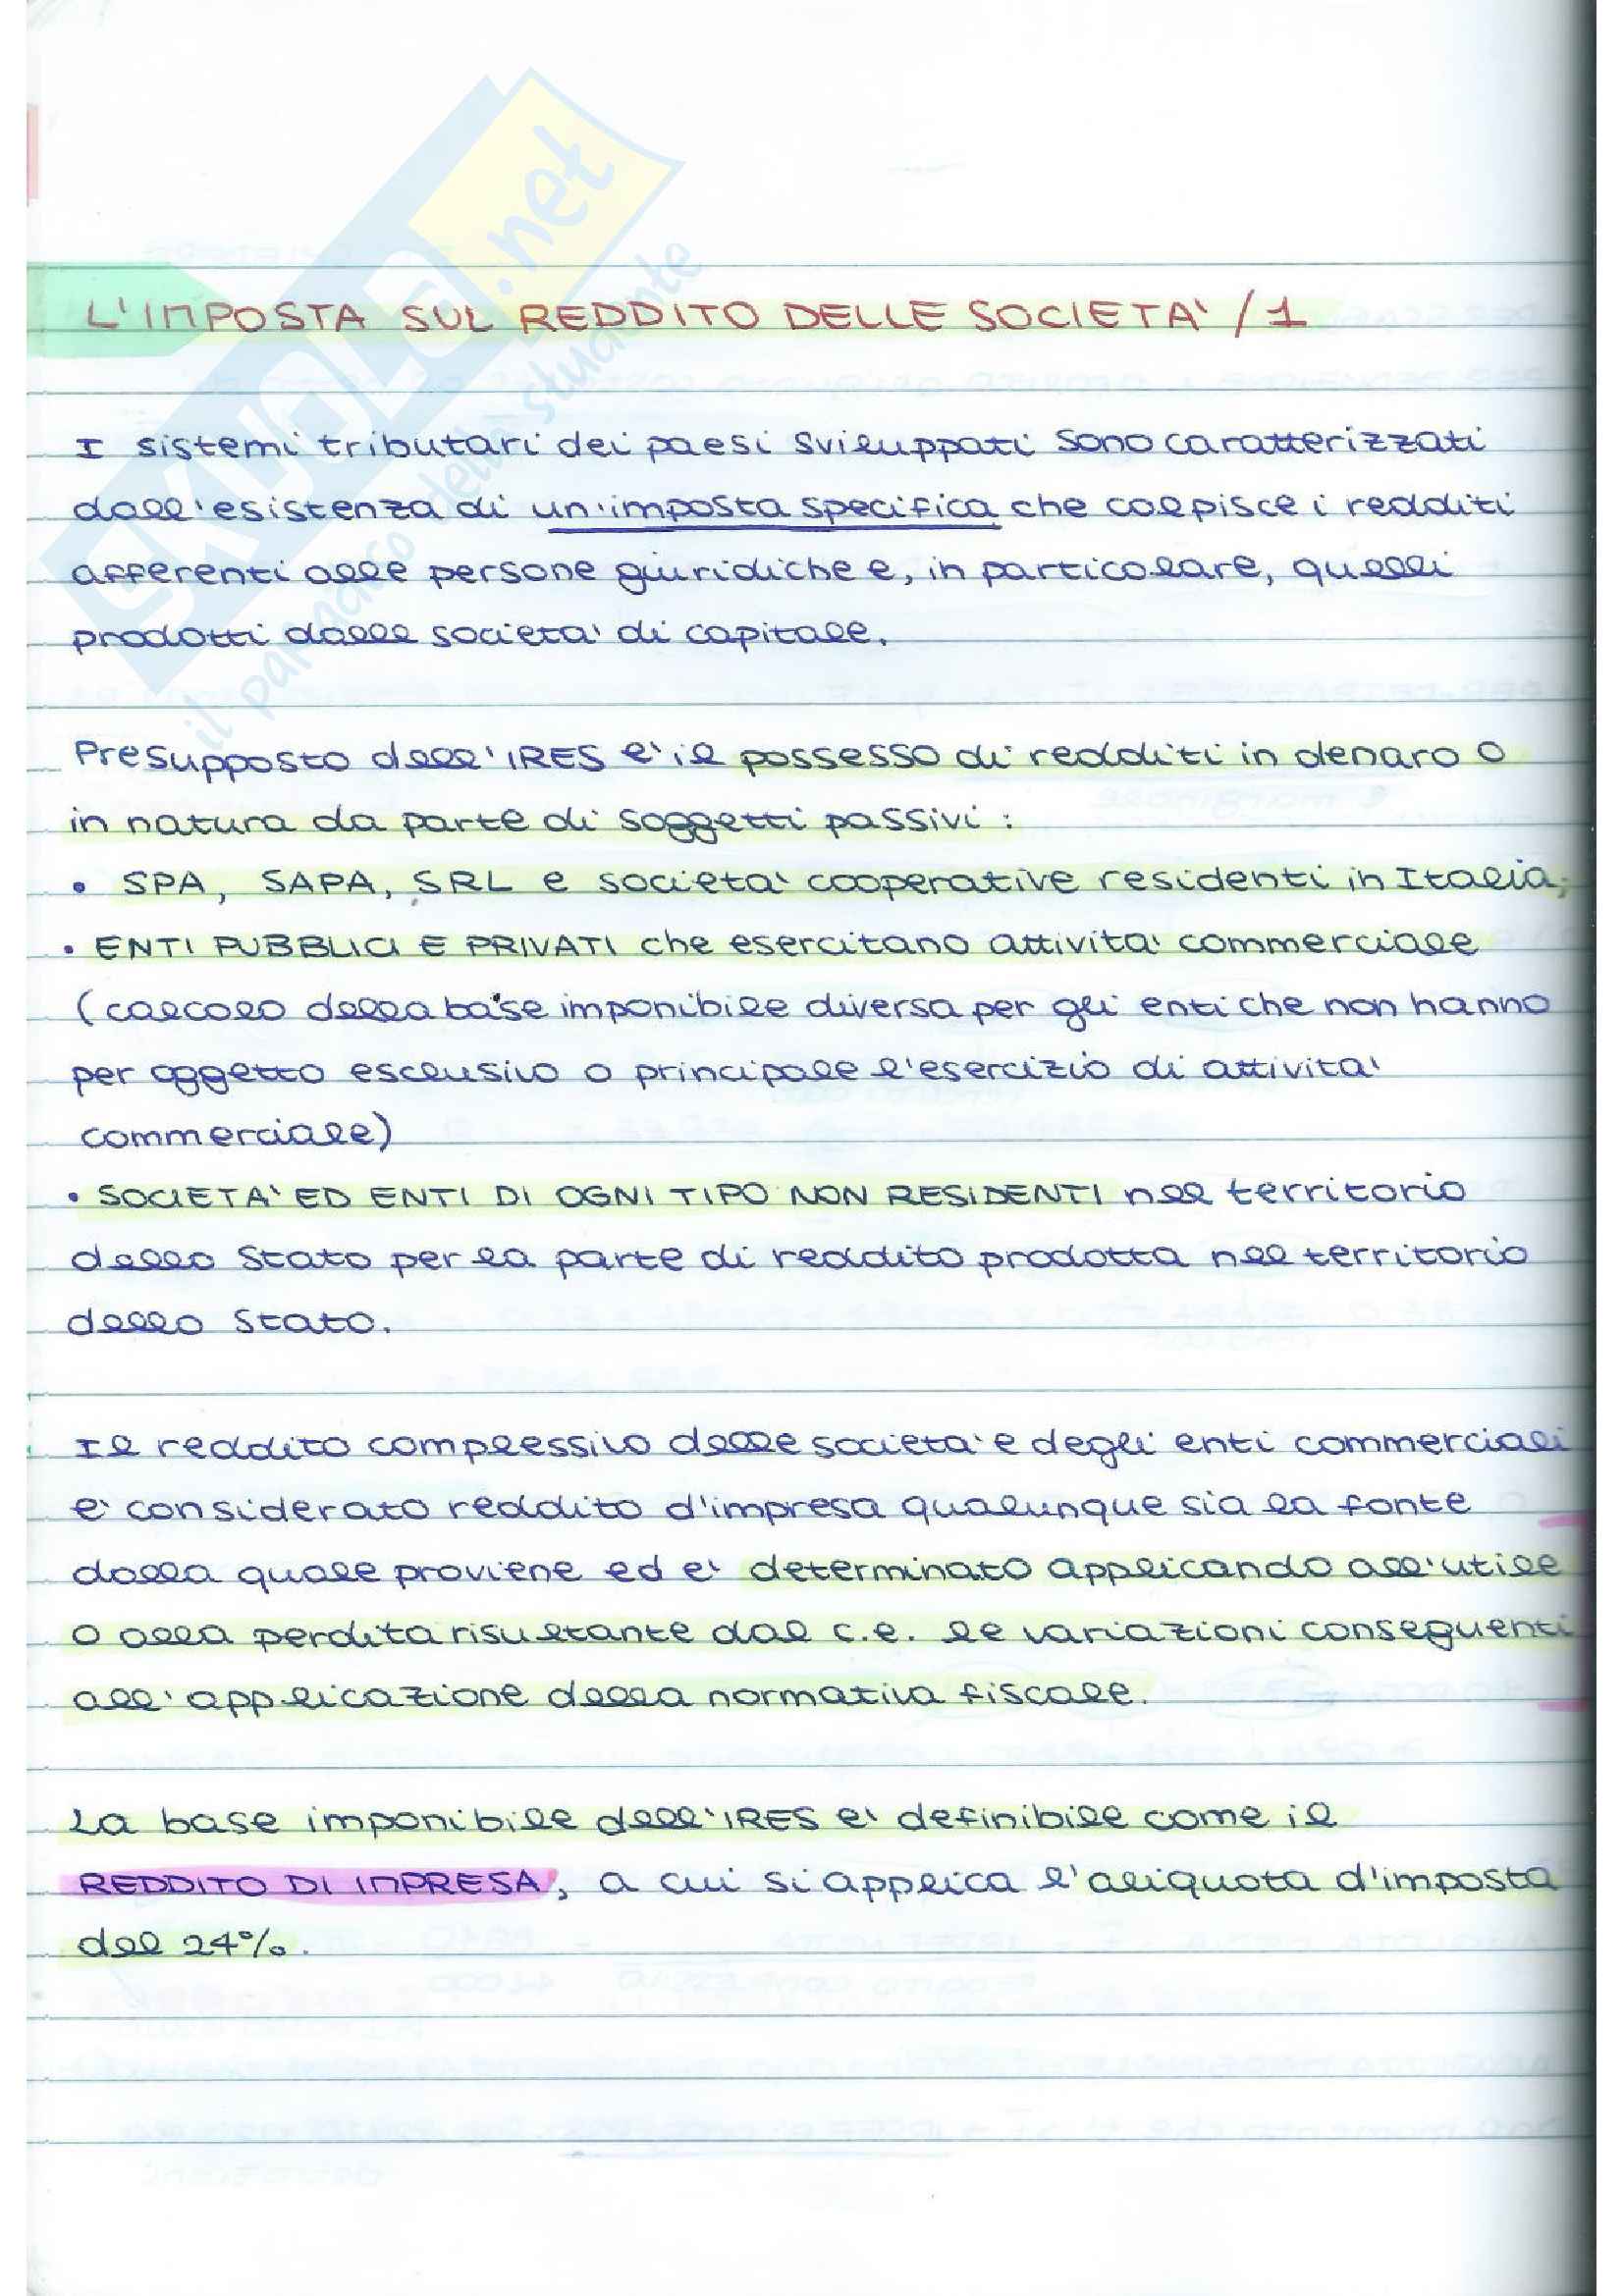 SKUOLA.net
il paradiso dello studente
L'IMPOSTA SUL REDDITO DELLE SOCIETA' / 1
I sistemi tributari dei paesi sviluppati sono caratterizzati
dall'esistenza di un'imposta specifica che colpisce i redditi
afferenti alle persone giuridiche e, in particolare, quelli
prodotti dalle societa' di capitale.
Presupposto dell'IRES e' il possesso di redditi in denaro o
in natura da parte di soggetti passivi :
• SPA, SAPA, SRL e societa' cooperative residenti in Italia;
• ENTI PUBBLICI E PRIVATI che esercitano attivita' commerciale
(calcolo della base imponibile diversa per gli enti che non hanno
per oggetto esclusivo o principale l'esercizio di attivita'
commerciale)
• SOCIETA' ED ENTI DI OGNI TIPO NON RESIDENTI nel territorio
dello Stato per la parte di reddito prodotta nel territorio
dello Stato.
Il reddito complessivo delle societa' e degli enti commerciali
e' considerato reddito d'impresa qualunque sia la fonte
dalla quale proviene ed e' determinato applicando all'utile
o alla perdita risultante dal c.e. le variazioni conseguenti
all'applicazione della normativa fiscale.
La base imponibile dell'IRES e' definibile come il
REDDITO DI IMPRESA, a cui si applica l'aliquota d'imposta
del 24%.